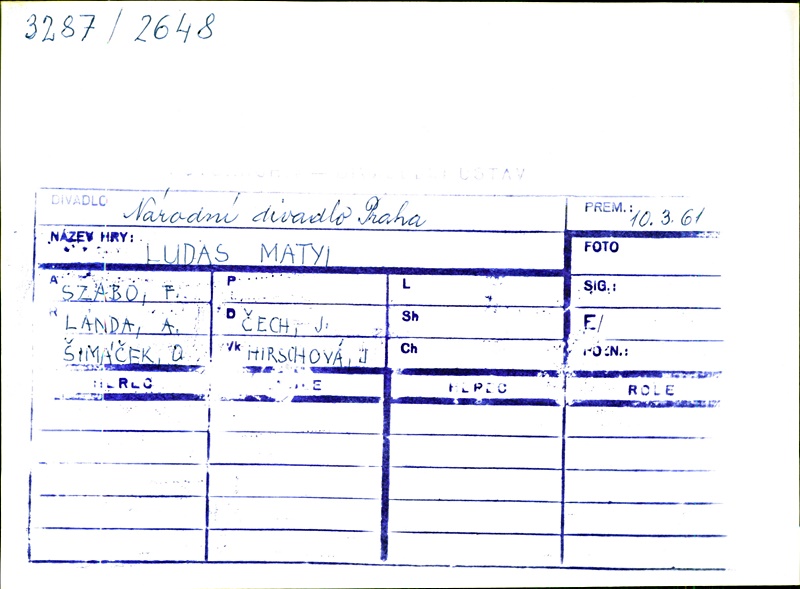 3287 / 2648
ÚSTAV
DIVADLO Národní divadlo Praha PREM.: 10.3.61
NÁZEV HRY: LUDAS MATYI FOTO
A SZABÓ, F. P L SIG.:
R LANDA, A. D ČECH, J. Sh F/
ŠIMÁČEK, O Vk HIRSCHOVÁ, J Ch POZN.:
HEREC HEREC ROLE